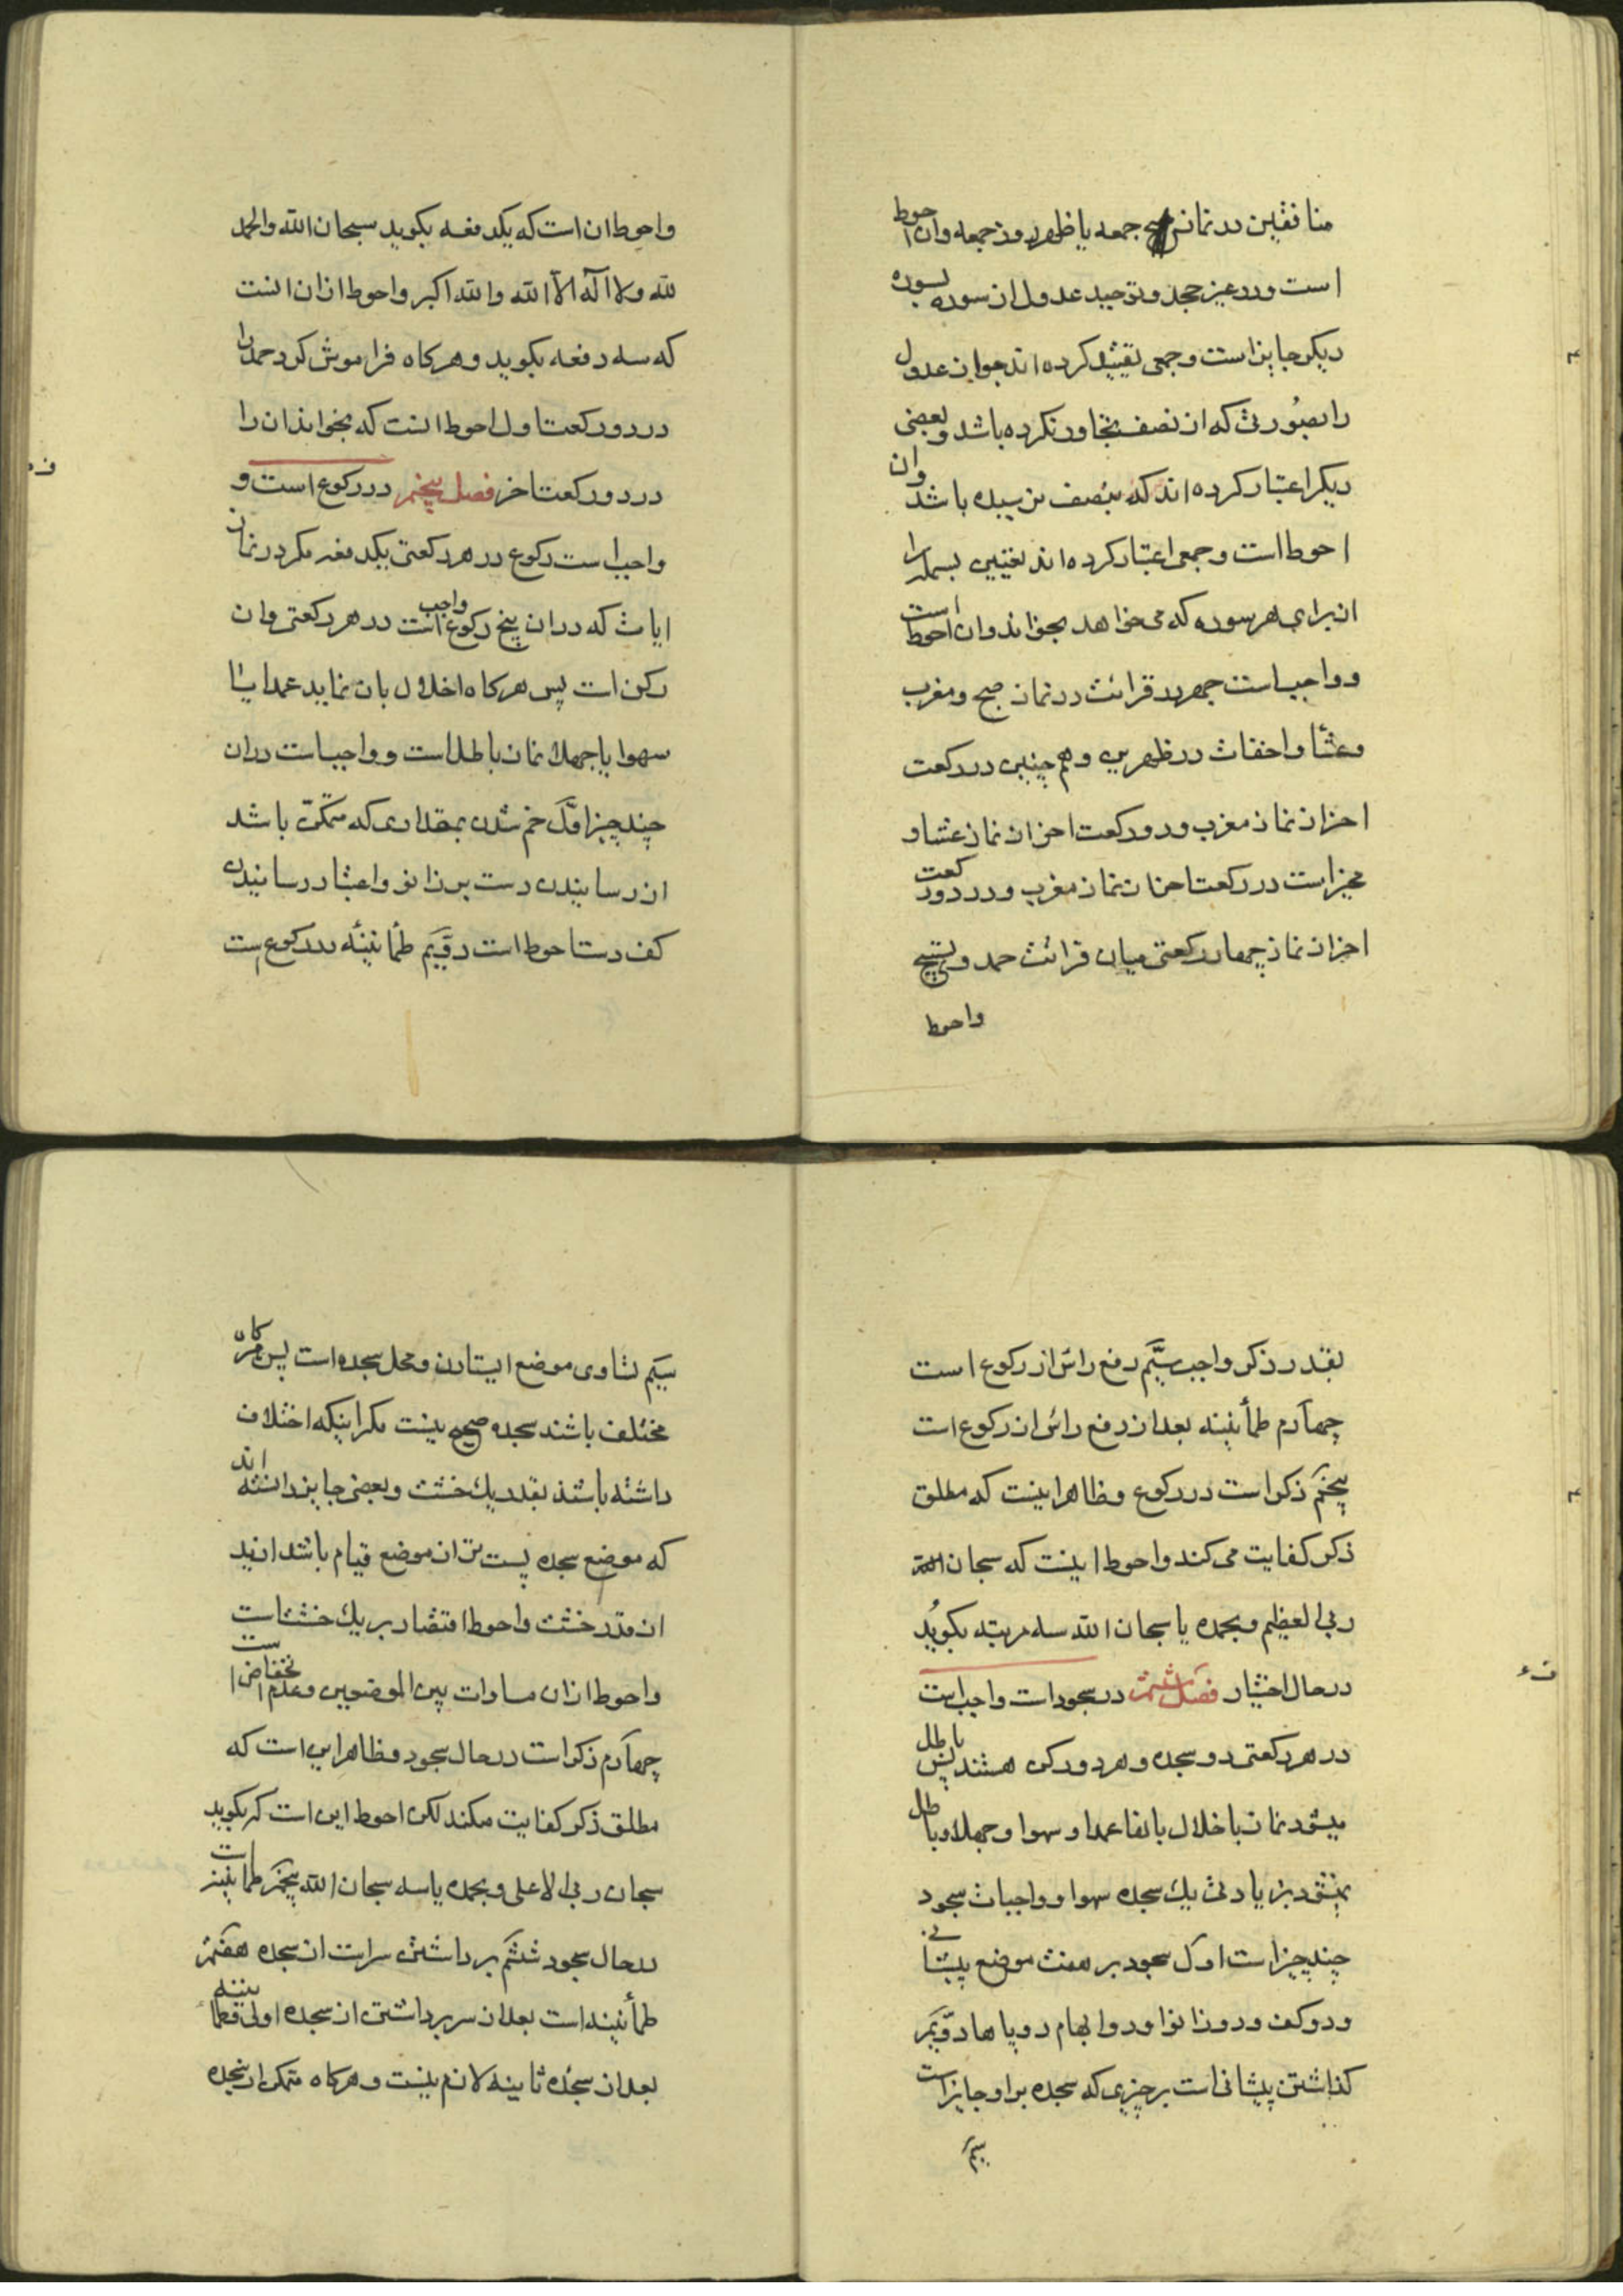 منافقین در نماز صبح جمعه یا ظهر روز جمعه وان احوط
است ودر غیر جحد و توحید عدول از سوره بسوره
دیکر جایز است و جمعی تقیید کرده اند جواز عدول
را بصورتی که از نصف تجاوز نکرده باشد و بعضی
دیکر اعتبار کرده اند که بنصف نرسیده باشد وان
احوط است و جمعی اعتبار کرده اند تعیین بسمله را
از برای هر سوره که می خواهد بخواند وان احوط است
و واجب است جهر در قرائت در نماز صبح و مغرب
وعشا واخفات در ظهرین و هم چنین در رکعت
اخر از نماز مغرب و دو رکعت اخر از نماز عشا و
مخیر است در رکعت اخر از نماز مغرب و در دو رکعت
اخر از نماز چهار رکعتی میان قرائت حمد و تسبیح
واحوط
واحوط ان است که یکدفعه بکوید سبحان الله والحمد
لله ولا اله الا الله والله اکبر واحوط ازان انست
که سه دفعه بکوید وهرکاه فراموش کرد حمد را
در دو رکعت اول احوط انست که بخواند ان را
در دو رکعت اخر فصل پنجم در رکوع است و
واجب است رکوع در هر رکعتی یکدفعه مکر در نماز
ایات که در ان پنج رکوع واجب است در هر رکعتی وان
رکن است پس هرکاه اخلال بان نماید عمدا یا
سهوا یا جهلا نماز باطل است و واجب است در ان
چند چیز اول خم شدن بمقداری که متمکن باشد
از رسانیدن دست بر زانو و اعتبار رسانیدن
کف دست احوط است دویم طمأنینه در رکوع است
بقدر ذکر واجب سیم رفع راس از رکوع است
چهارم طمأنینه بعد از رفع راس از رکوع است
پنجم ذکر است در رکوع وظاهر اینست که مطلق
ذکر کفایت می کند واحوط اینست که سبحان الله
ربی العظیم وبحمده یا سبحان الله سه مرتبه بکوید
در حال اختیار فصل ششم در سجود است واجب است
در هر رکعتی دو سجده و هر دو رکن هستند پس باطل
میشود نماز باخلال بانها عمدا وسهوا وجهلا وباطل
نمیشود بزیادتی یک سجده سهوا و واجبات سجود
چند چیز است اول سجود بر هفت موضع پیشانی
ودو کف ودو زانو او دو ابهام دو پاها دویم
کذاشتن پیشانی است بر چیزی که سجده بر او جایز است
سیم
سیم تساوی موضع ایستادن ومحل سجده است پس هرکاه
مختلف باشند سجده صحیح نیست مکر اینکه اختلاف
داشته باشند بقدر یک خشت وبعضی جایز دانسته اند
که موضع سجده پست تر از موضع قیام باشد ازید
از قدر خشت واحوط اقتصار بر یک خشت است
واحوط ازان مساوات بین الموضعین وعدم انخفاض است
چهارم ذکر است در حال سجود وظاهر این است که
مطلق ذکر کفایت میکند لکن احوط این است که بکوید
سبحان ربی الاعلی وبحمده یا سه سبحان الله پنجم طمانینه است
در حال سجود ششم برداشتن سر است از سجده هفتم
طمأنینه است بعد از سر برداشتن از سجده اولی وطمانینه
بعد از سجده ثانیه لازم نیست وهرکاه متمکن از سجده